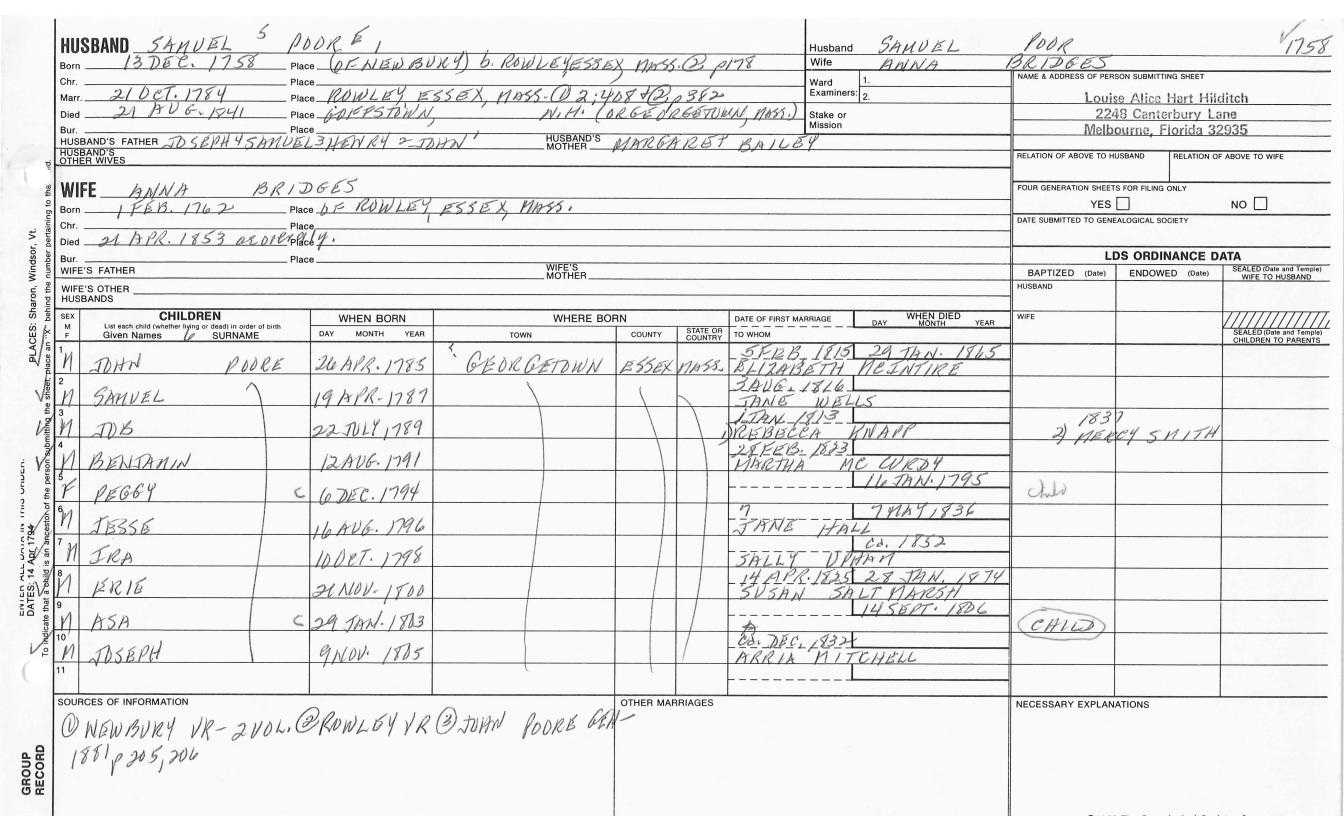 HUSBAND SAMUEL 5 POORE 1
Born 13 DEC. 1758 Place (OF NEWBURY) b. ROWLEY, ESSEX, MASS. (2) p178
Chr. Place
Marr. 21 OCT. 1784 Place ROWLEY, ESSEX, MASS. (1) 2:408 + (2) p382
Died 21 AUG. 1841 Place GOFFSTOWN, N.H. (OR GEORGETOWN, MASS.)
Bur. Place
HUSBAND'S FATHER JOSEPH 4 SAMUEL 3 HENRY 2 JOHN 1 HUSBAND'S MOTHER MARGARET BAILEY
HUSBAND'S OTHER WIVES
Husband SAMUEL POOR ✓1758
Wife ANNA BRIDGES
Ward Examiners: 1.
2.
Stake or Mission
NAME & ADDRESS OF PERSON SUBMITTING SHEET
Louise Alice Hart Hilditch
2248 Canterbury Lane
Melbourne, Florida 32935
RELATION OF ABOVE TO HUSBAND RELATION OF ABOVE TO WIFE
FOUR GENERATION SHEETS FOR FILING ONLY
YES NO
DATE SUBMITTED TO GENEALOGICAL SOCIETY
WIFE ANNA BRIDGES
Born 1 FEB. 1762 Place OF ROWLEY, ESSEX, MASS.
Chr. Place
Died 21 APR. 1853 Place
Bur. Place
WIFE'S FATHER WIFE'S MOTHER
WIFE'S OTHER HUSBANDS
LDS ORDINANCE DATA
BAPTIZED (Date) ENDOWED (Date) SEALED (Date and Temple) WIFE TO HUSBAND
HUSBAND
WIFE
SEALED (Date and Temple) CHILDREN TO PARENTS
SEX M F CHILDREN WHEN BORN WHERE BORN DATE OF FIRST MARRIAGE WHEN DIED
List each child (whether living or dead) in order of birth
Given Names 6 SURNAME DAY MONTH YEAR TOWN COUNTY STATE OR COUNTRY TO WHOM DAY MONTH YEAR
1 M JOHN POORE 26 APR. 1785 GEORGETOWN ESSEX MASS. 5 FEB. 1815 29 JAN. 1865
ELIZABETH MCINTIRE
2 M SAMUEL 19 APR. 1787 3 AUG. 1816
JANE WELLS
3 M JOB 22 JULY, 1789 1 JAN. 1813 1837
1) REBECCA KNAPP 2) MERCY SMITH
4 M BENJAMIN 12 AUG. 1791 28 FEB. 1833
MARTHA MC CURDY
5 F PEGGY C 6 DEC. 1794 16 JAN. 1795 Child
6 M JESSE 16 AUG. 1796 7 7 MAY, 1836
JANE HALL
7 M IRA 10 OCT. 1798 ca. 1852
SALLY UPHAM
8 M ERIE 21 NOV. 1800 14 APR. 1825 28 JAN. 1874
SUSAN SALTMARSH
9 M ASA C 29 JAN. 1803 14 SEPT. 1806 CHILD
10 M JOSEPH 9 NOV. 1805 ca. DEC. 1832
ARRIA MITCHELL
11
SOURCES OF INFORMATION OTHER MARRIAGES NECESSARY EXPLANATIONS
(1) NEWBURY VR - 2 VOL. (2) ROWLEY VR (3) JOHN POORE GEN
1881 p 205, 206
PLACES: Sharon, Windsor, Vt.
ENTER ALL DATA IN THIS ORDER:
DATES: 14 Apr 1794
GROUP RECORD